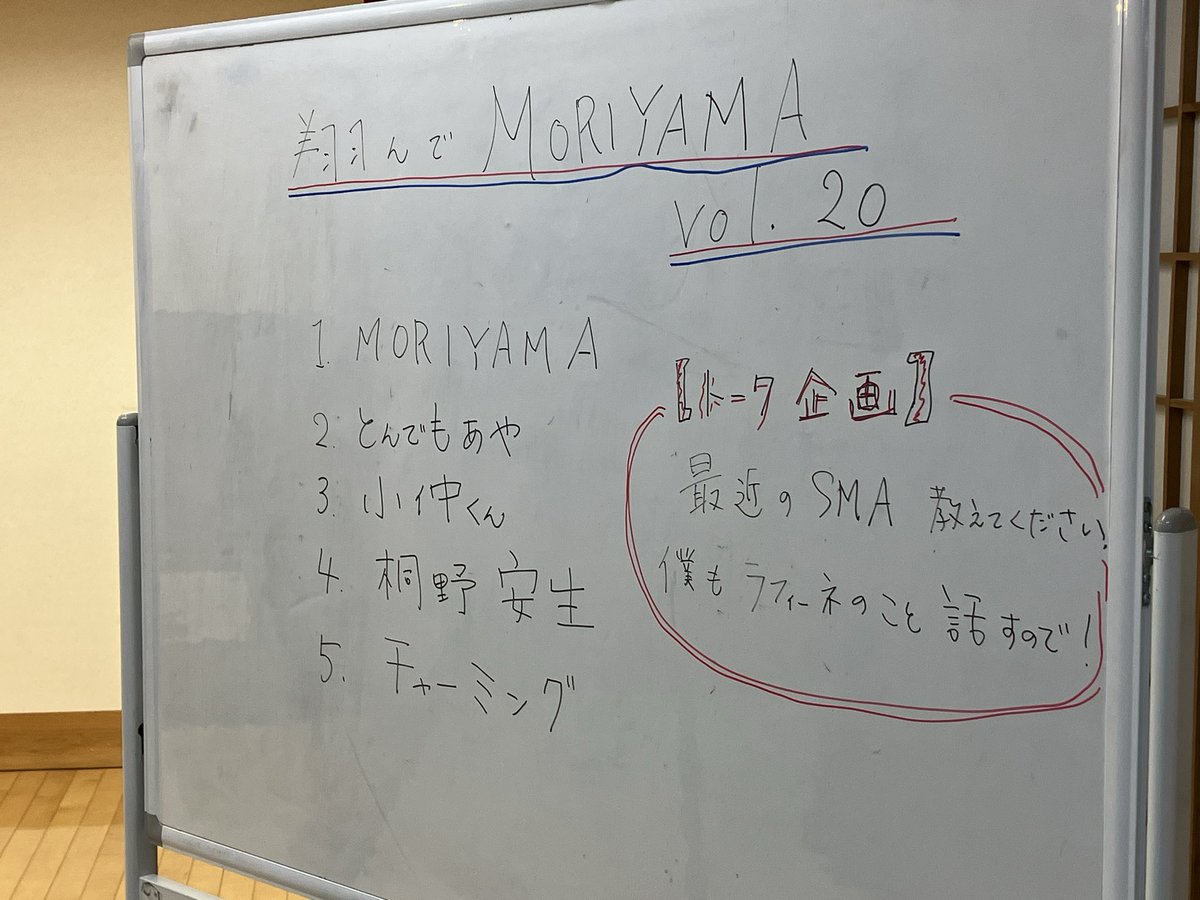 翔んで MORIYAMA
vol. 20
1. MORIYAMA
2. とんでもあや
3. 小仲くん
4. 桐野安生
5. チャーミング
【トーク企画】
最近のSMA 教えてください!
僕もラフィーネのこと話すので!